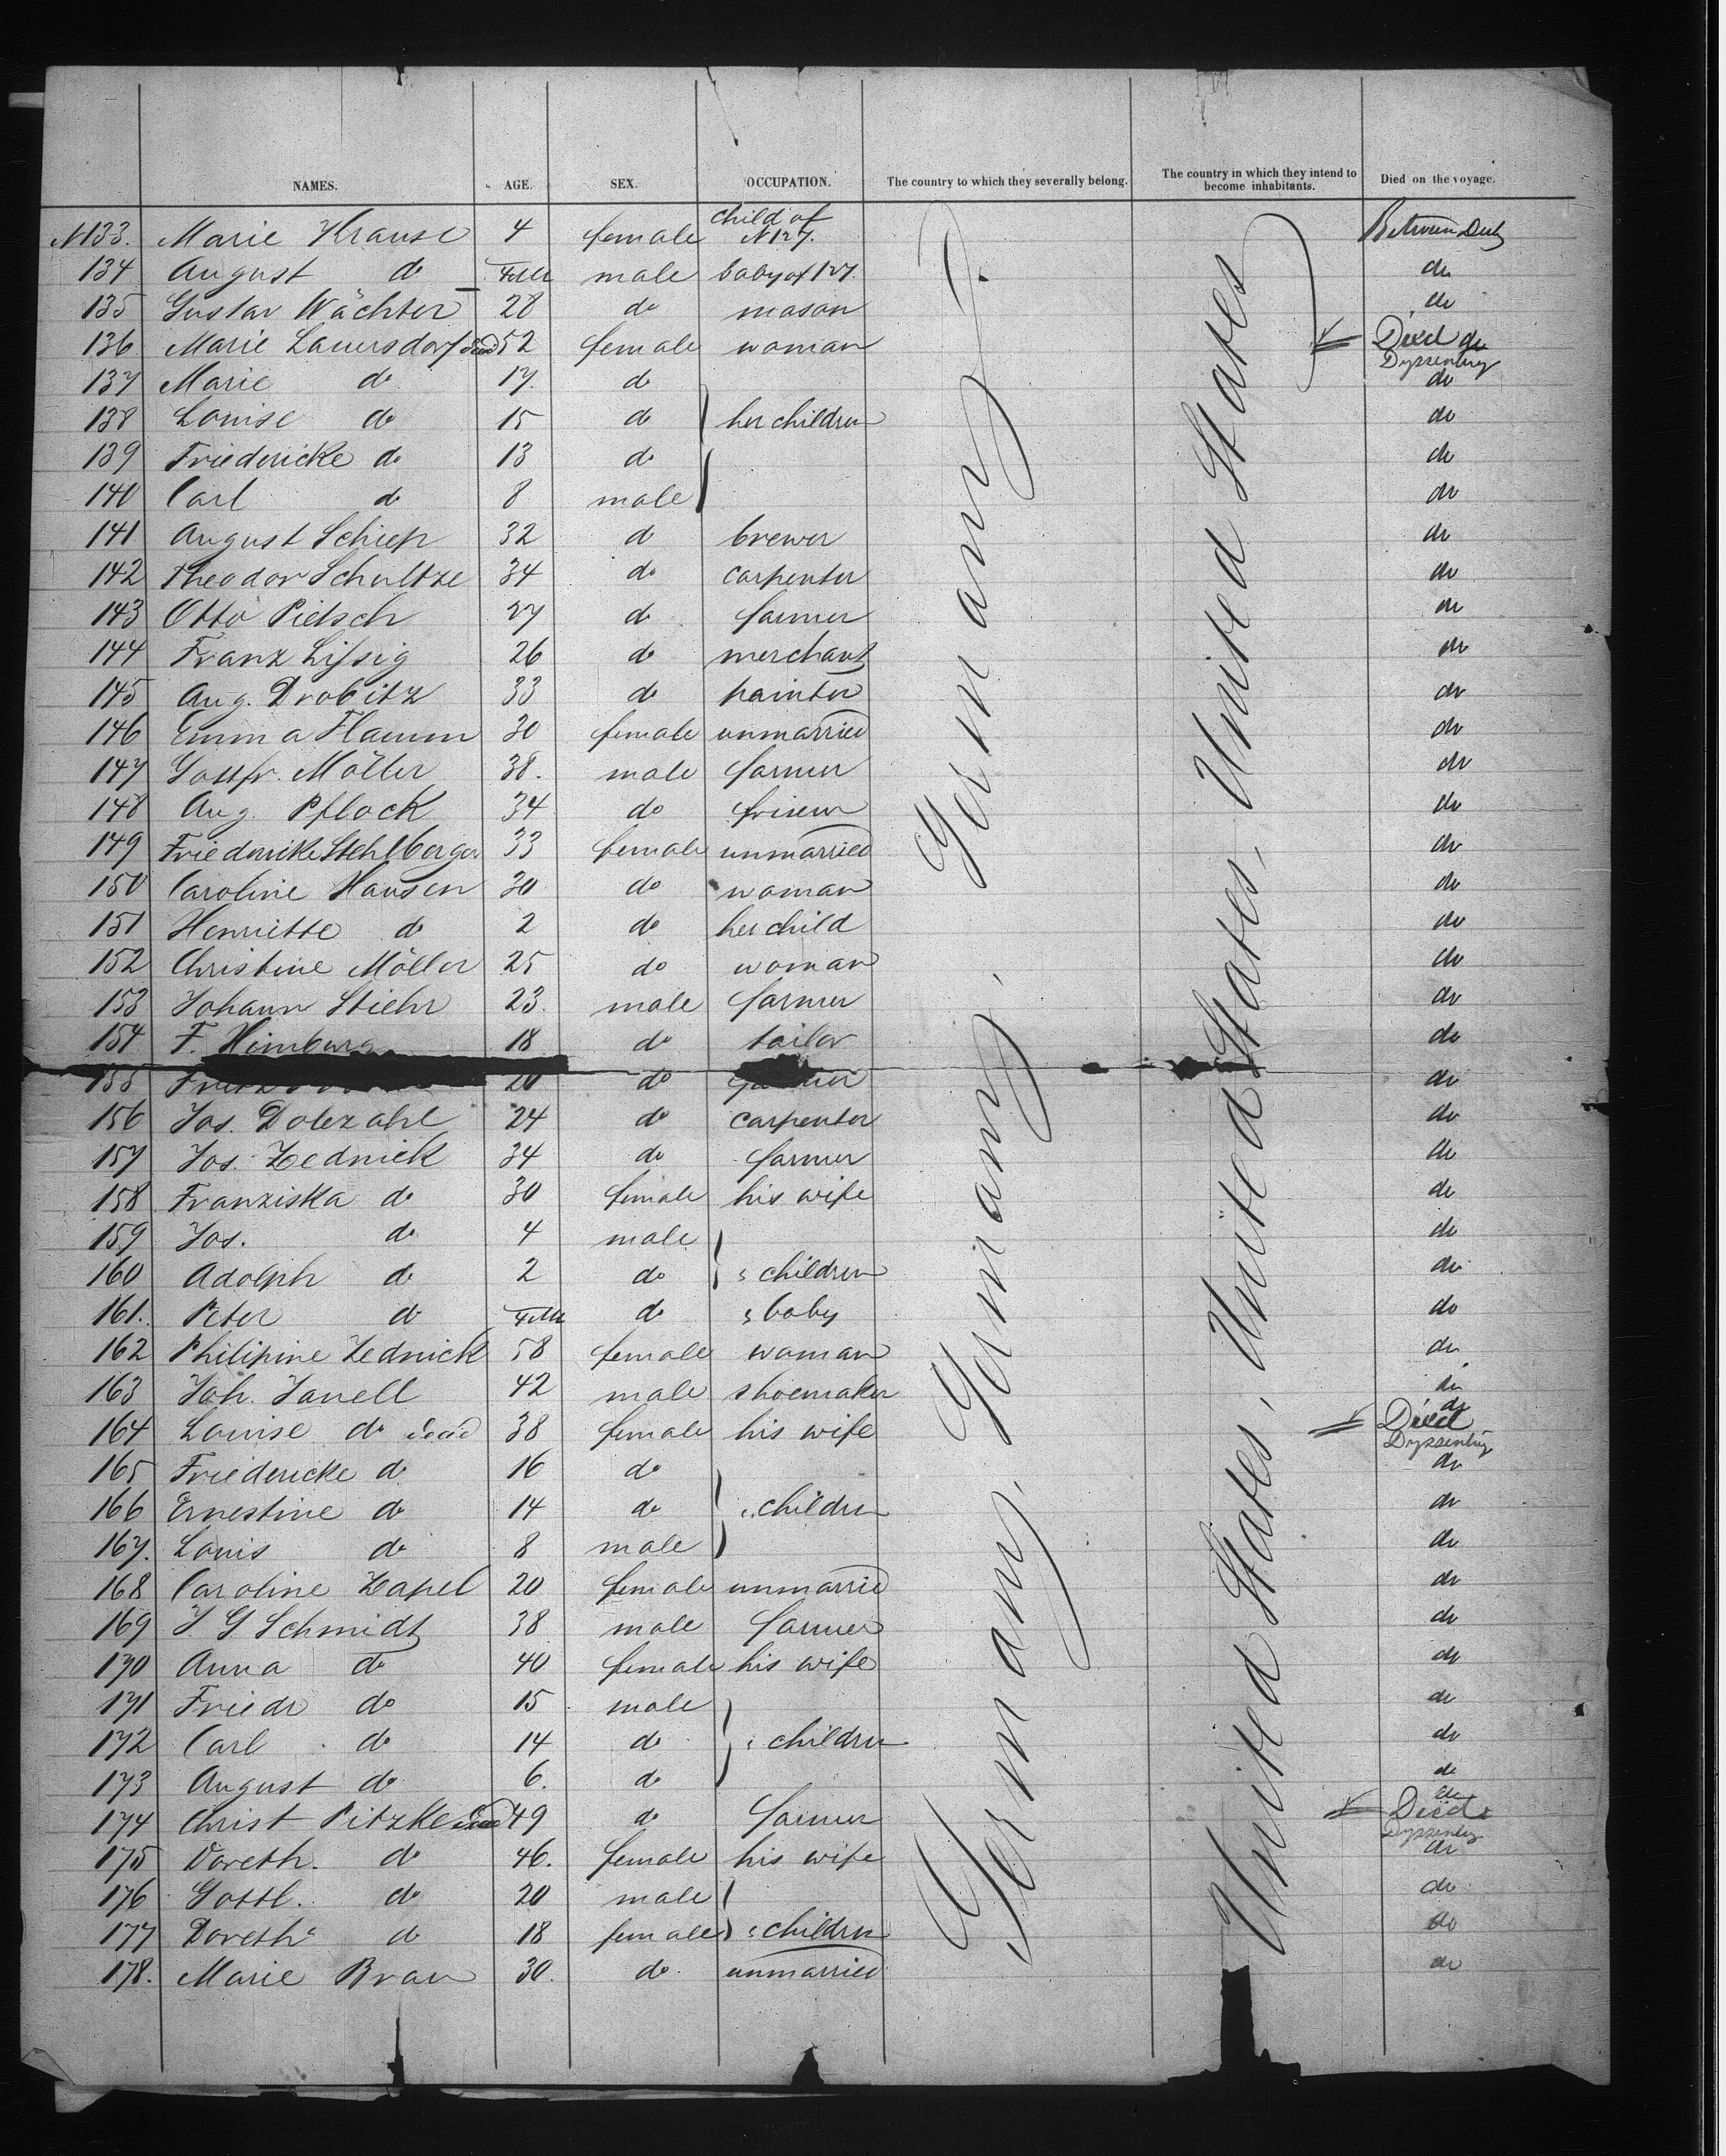 NAMES. AGE. SEX. OCCUPATION. The country to which they severally belong. The country in which they intend to become inhabitants. Died on the voyage.
N133. Marie Krause 4 female child of N127. Between Deck
134 August do male baby of 127. do
135 Gustav Wächter 28 do mason do
136 Marie Lauersdorf dead 52 female woman Died do Dyssentery
137 Marie do 17. do do
138 Louise do 15 do her children do
139 Friedericke do 13 do do
140 Carl do 8 male do
141 August Schiep 32 do brewer do
142 Theodor Schultze 34 do carpenter do
143 Otto Pietsch 27 do farmer do
144 Franz Lissig 26 do merchant do
145 Aug. Drobitz 33 do painter do
146 Emma Flamm 30 female unmarried do
147 Gottfr. Möller 38. male farmer do
148 Aug. Pflock 34 do friseur do
149 Friederike Stehlberger 33 female unmarried do
150 Caroline Hansen 30 do woman do
151 Henriette do 2 do her child do
152 Christine Möller 25 do woman do
153 Johann Stiehr 23. male farmer do
154 F. Himburg 18 do tailor do
155 Fritz 20 do do
156 Jos. Dolezahl 24 do carpenter do
157 Jos. Zednick 34 do farmer do
158 Franziska do 30 female his wife do
159 Jos. do 4 male do
160 Adolph do 2 do " children do
161. Peter do do " baby do
162 Philipine Zednick 58 female woman do
163 Joh. Janell 42 male shoemaker do
164 Louise do dead 38 female his wife do Died Dyssentery
165 Friedericke do 16 do do
166 Ernestine do 14 do " children do
167. Louis do 8 male do
168 Caroline Zapel 20 female unmarried do
169 J. G. Schmidt 38 male farmer do
170 Anna do 40 female his wife do
171 Friedr do 15 male do
172 Carl do 14 do " children do
173 August do 6. do do
174 Christ Pitzke dead 49 do farmer do Died Dyssentery
175 Doreth. do 46. female his wife do
176 Gottl. do 20 male do
177 Doreth. do 18 female " children do
178. Marie Bran 30. do unmarried do
Germany, Germany, Germany.
United States, United States, United States